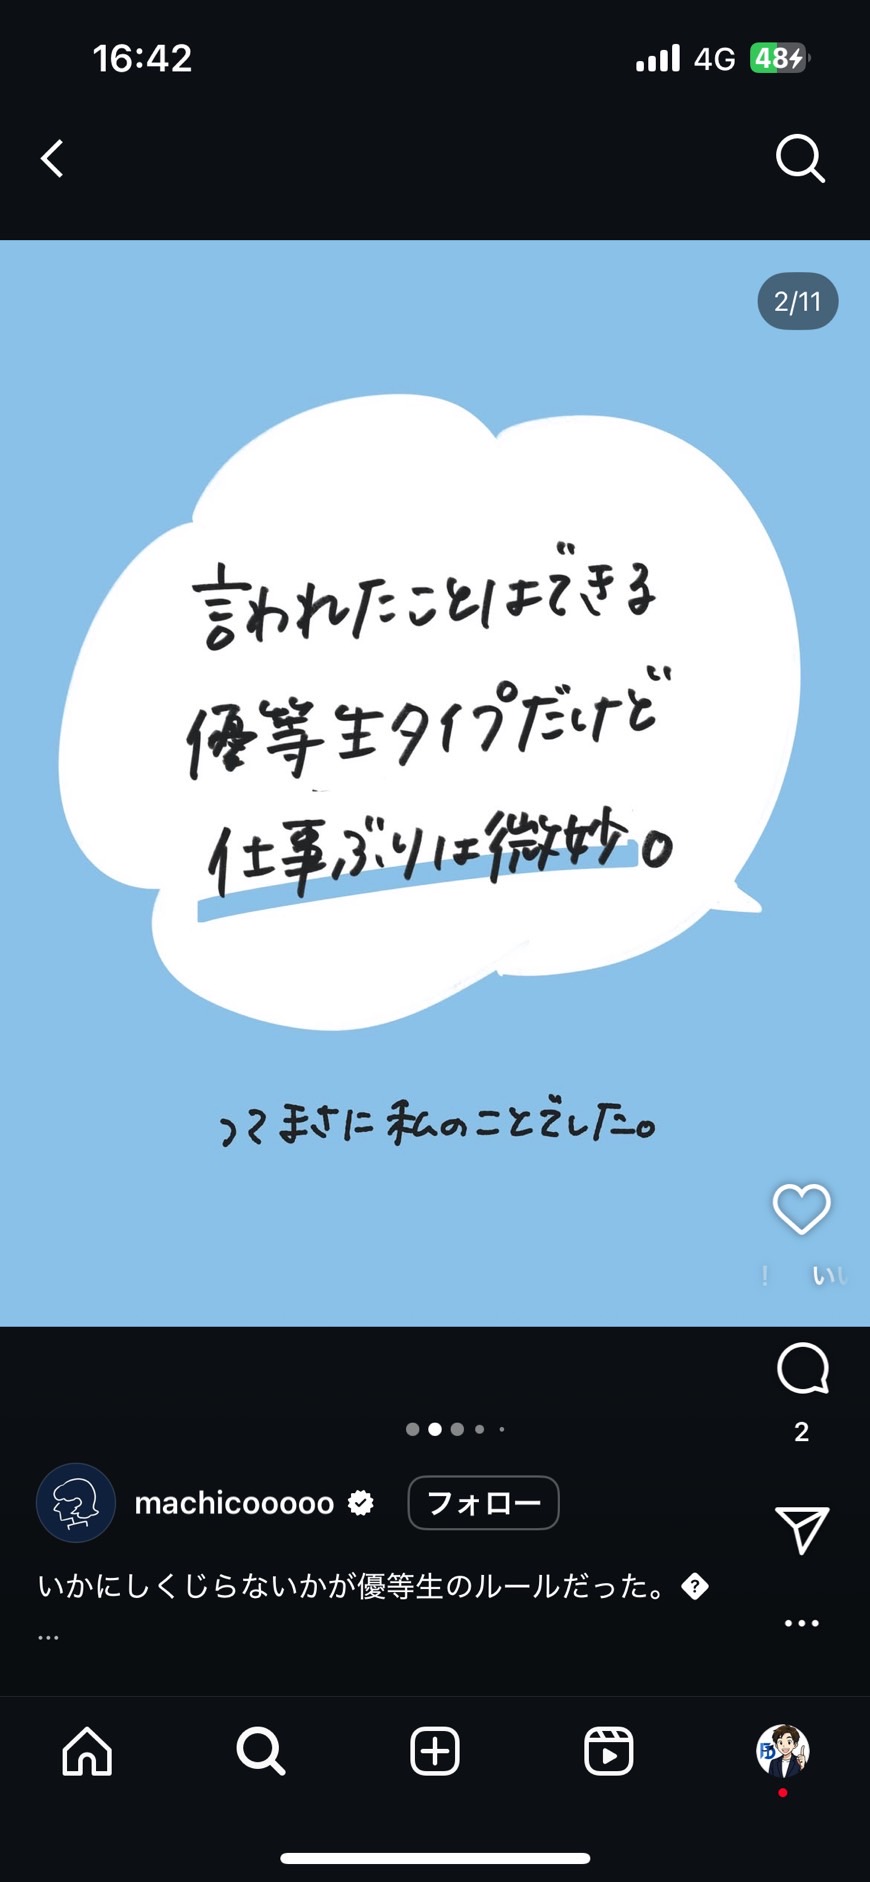 16:42
4G
48
2/11
言われたことはできる
優等生タイプだけど
仕事ぶりは微妙。
ってまさに私のことでした。
! いい
2
machicooooo
フォロー
いかにしくじらないかが優等生のルールだった。
...